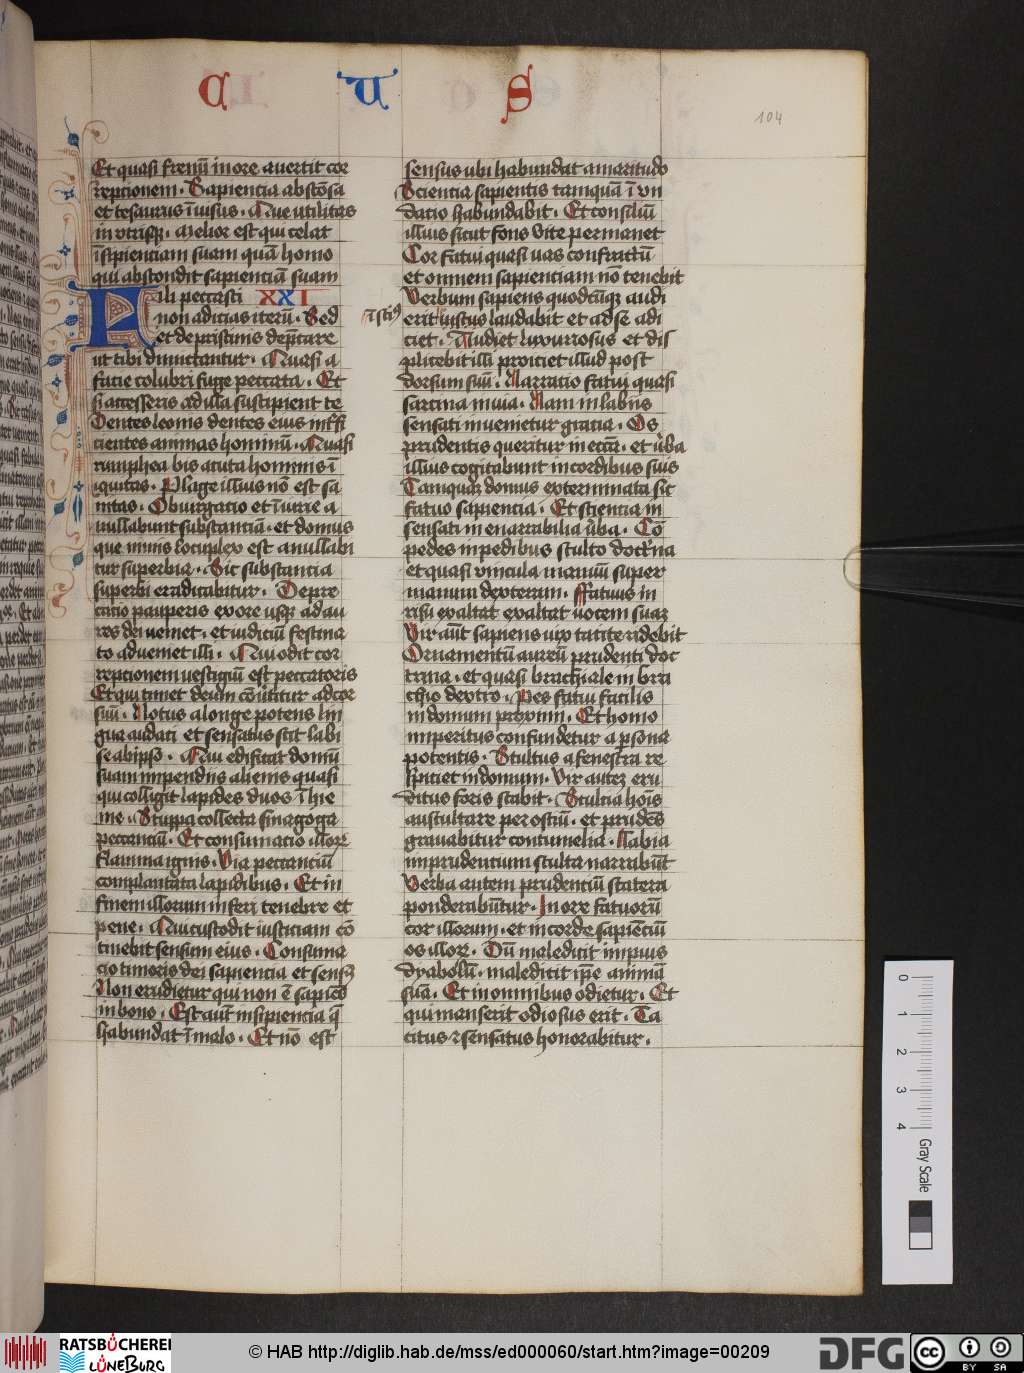 C U S
104
Et quasi frenū in ore avertit cor
repcionem . Sapiencia abscōsa
et tesaurus īvisus . Que utilitas
in utrisqꝫ . Melior est qui celat
īsipienciam suam quā homo
qui abscondit sapienciā suam
Fili peccasti XXI
non adicias iterū . Sed
et de pristinis dep̄care
ut tibi dimictantur . Quasi a
facie colubri fuge peccata . Et
si accesseris ad illa suscipient te
Dentes leonis dentes eius int̄fi
cientes animas hominū . Quasi
rumphea bis acuta homenis ī
iquitas . Plage illius nō est sa
nitas . Obiurgacio et īiurie a
nullabunt substanciā . et domus
que nimis locuplex est anullabi
tur superbia . Sic substancia
superbi eradicabitur . Depre
cacio pauperis ex ore usqꝫ ad au
res dei veniet . et iudiciū festina
to adveniet illi . Qui odit cor
repcionem vestigiū est peccatoris
Et qui timet deum cōvertitur ad cor
suū . Notus a longe potens lin
gua audaci et sensatus scit labi
se ab ip̄o . Qui edificat domū
suam impendiis alienis quasi
qui colligit lapides duos ī hie
me . Stuppa collecta sinagoga
peccanciū . Et consumacio illorꝝ
flamma ignis . Via peccanciū
complantata lapidibus . Et in
finem illorum inferi tenebre et
pene . Qui custodit iusticiam cō
tinebit sensum eius . Consuma
cio timoris dei sapiencia et sensꝰ
Non erudietur qui non ē sapiēs
in bono . Est aut̄ insipiencia q̄
habundat ī malo . Et nō est
sensus ubi habundat amaritudo
Sciencia sapientis tamquā ī un
dacio habundabit . Et consiliū
illius sicut fons vite permanet
Cor fatui quasi vas confractū
et omnem sapienciam nō tenebit
Verbum sapiens quodcūqꝫ audi
īsciꝰ
erit iustus laudabit et ad se adi
ciet . Audiet luxurrosus et dis
plicebit illi proiciet illud post
dorsum suū . Narracio fatui quasi
sarcina in via . Nam in labiis
sensati invenietur gracia . Os
prudentis queritur in ecc̄a . et v̄ba
illius cogitabunt in cordibus suis
Tamquaꝫ domus exterminata sic
fatuo sapiencia . Et sciencia in
sensati inenarrabilia v̄ba . Cō
pedes in pedibus stulto doct̄na
et quasi vincula manuū super
manum dexteram . ffatuus in
risu exaltat exaltat vocem suaꝫ
Vir aūt sapiens vix tacite ridebit
Ornamentū aureū prudenti doc
trina . et quasi brachiale in bra
chio dextro . Pes fatui facilis
in domum proximi . Et homo
imperitus confundetur a p̄sona
potentis . Stultus a fenestra re
spiciet in domum . Vir auteꝫ eru
ditus foris stabit . Stulticia hoīs
auscultare per ostiū . et prudēs
gravabitur contumelia . Labia
imprudentium stulta narrabūt
Verba autem prudenciū statera
ponderabūtur . In ore fatuorū
cor illorum . et in corde sapienciū
os illorꝝ . Dū maledicit impius
dyabolū . maledicit ip̄e animā
suā . Et in omnibus odietur . Et
qui manserit odiosus erit . Ta
citus ꝛ sensatus honorabitur .
0 1 2 3 4
Gray Scale
RATSBÜCHEREI
LÜNEBURG
© HAB http://diglib.hab.de/mss/ed000060/start.htm?image=00209
DFG
cc BY SA